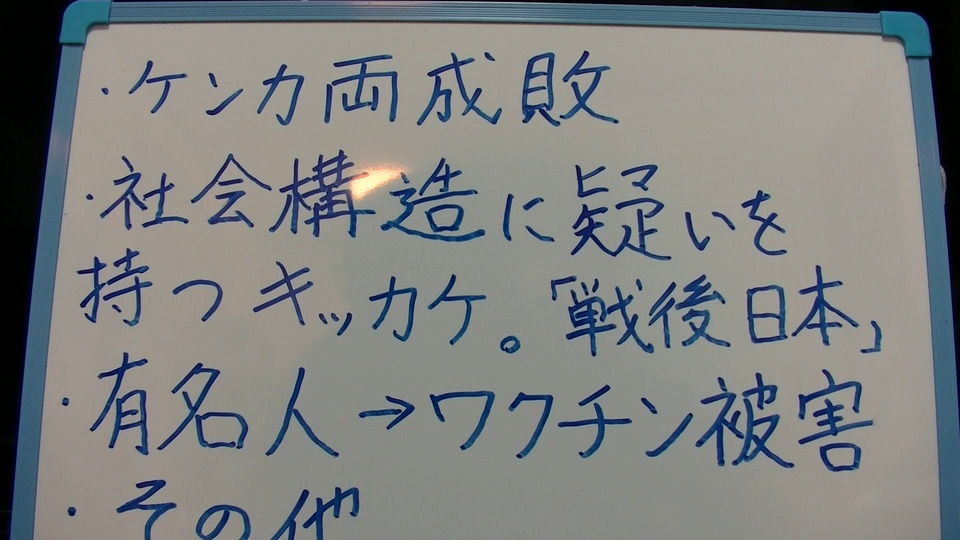 ・ケンカ両成敗
・社会構造に疑いを
持つキッカケ。「戦後日本」
・有名人→ワクチン被害
・その他